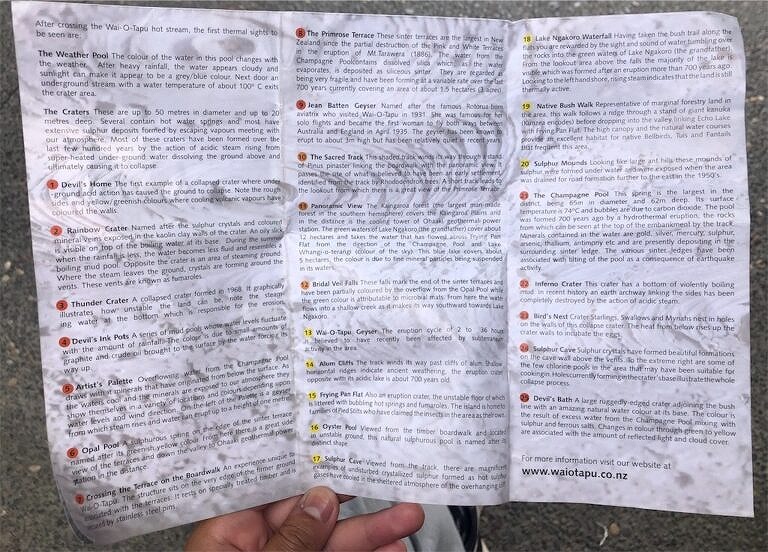 After crossing the Wai-O-Tapu hot stream, the first thermal sights to
be seen are:
The Weather Pool The colour of the water in this pool changes with
the weather. After heavy rainfall, the water appears cloudy and
sunlight can make it appear to be a grey/blue colour. Next door an
underground stream with a water temperature of about 100° C exits
the crater area.
The Craters These are up to 50 metres in diameter and up to 20
metres deep. Several contain hot water springs and most have
extensive sulphur deposits formed by escaping vapours meeting with
our atmosphere. Most of these craters have been formed over the
last few hundred years by the action of acidic steam rising from
super-heated under-ground water dissolving the ground above and
ultimately causing it to collapse.
1 Devil's Home The first example of a collapsed crater where under-
ground acid action has caused the ground to collapse. Note the rough
sides and yellow/greenish colours where cooling volcanic vapours have
coloured the walls.
2 Rainbow Crater Named after the sulphur crystals and coloured
mineral veins exposed in the kaolin clay walls of the crater. An oily slick
is visible on top of the boiling water at its base. During the summer
when the rainfall is less, the water becomes less fluid and resembles a
boiling mud pool. Opposite the crater is an area of steaming ground.
Where the steam leaves the ground, crystals are forming around the
vents. These vents are known as fumaroles.
3 Thunder Crater A collapsed crater formed in 1968. It graphically
illustrates how unstable the land can be, note the steam-
ing water at the bottom which is responsible for the erosion.
4 Devil's Ink Pots A series of mud pools whose water levels fluctuate
with the amount of rainfall. The colour is due to small amounts of
graphite and crude oil brought to the surface by the water forcing its
way up.
5 Artist's Palette Overflowing water from the Champagne Pool
draws with it minerals that have originated from below the surface. As
the waters cool and the minerals are exposed to our atmosphere they
show themselves in a variety of locations and colours depending upon
water levels and wind direction. On the left of the Palette is a geyser
from which steam rises and water can erupt up to a height of one metre.
6 Opal Pool A sulphurous spring in the corner of the sinter terrace
named after its greenish/yellow colour. From here there is a great side
view of the terraces and down the valley to Ohaaki geothermal power
station in the distance.
7 Crossing the Terrace on the Boardwalk An experience unique to
Wai-O-Tapu. The structure sits on the very edge of the firmer ground
associated with the terraces. It rests on specially treated timber and is
secured by stainless steel pins.
8 The Primrose Terrace These sinter terraces are the largest in New
Zealand since the partial destruction of the Pink and White Terraces
in the eruption of Mt.Tarawera (1886). The water from the
Champagne Pool contains dissolved silica which, as the water
evaporates, is deposited as siliceous sinter. They are regarded as
being very fragile and have been forming at a variable rate over the last
700 years currently covering an area of about 1.5 hectares (3 acres).
9 Jean Batten Geyser Named after the famous Rotorua-born
aviatrix who visited Wai-O-Tapu in 1931. She was famous for her
solo flights and became the first woman to fly both ways between
Australia and England in April 1935. The geyser has been known to
erupt to about 3m but is usually subterranean.
10 The Sacred Track This shaded track works its way through a stand
of Pinus pinaster linking the boardwalk with the panoramic view. It
passes the site of what is believed to have been an early settlement
identified from the track by Rhododendron trees. A short track leads to
the lookout from which there is a great view of the Primrose Terrace.
11 Panoramic View The Kaingaroa forest (the largest man-made
forest in the southern hemisphere) covers the Kaingaroa Plains and
in the distance is the cooling tower of Ohaaki geothermal power
station. The green waters of Lake Ngakoro (the grandfather) cover about
12 hectares and takes the water that has flowed across Frying Pan
Flat from the direction of the Champagne Pool and Lake
Whangi-o-terangi (colour of the sky). This blue lake covers, about
5 hectares, the colour is due to fine mineral particles being suspended
in its waters.
12 Bridal Veil Falls These falls mark the end of the sinter terraces and
have been partially coloured by the overflow from the Opal Pool while
the green colour is attributable to microbial mats. From here the water
flows into a shallow creek as it makes its way southward towards Lake
Ngakoro.
13 Wai-O-Tapu Geyser The eruption cycle of 2 to 36 hours
is believed to have recently been affected by subterranean
activity in the area.
14 Alum Cliffs The track winds its way past cliffs of alum. Shallow
horizontal ridges indicate ancient weathering, the eruption crater
opposite with its acidic lake is about 700 years old.
15 Frying Pan Flat Also an eruption crater, the unstable floor of which
is littered with bubbling hot springs and fumaroles. The island is home to
families of Pied Stilts who have claimed the environment in the area as their own.
16 Oyster Pool Viewed from the timber boardwalk and located
in unstable ground, this natural sulphurous pool is named after its
distinct shape.
17 Sulphur Cave Viewed from the track, there are magnificent
examples of undisturbed crystallized sulphur formed as hot sulphur
gases have cooled in the sheltered atmosphere of the overhanging cliff.
18 Lake Ngakoro Waterfall Having taken the bush trail along the
flats you are rewarded by the sight and sound of water tumbling over
the falls on its way to Lake Ngakoro (the grandfather).
From the lookout area above the falls the majority of the lake is
visible which was formed after an eruption more than 700 years ago.
Looking to the left hand shore, rising steam indicates that the land is still
thermally active.
19 Native Bush Walk Representative of marginal forestry land in
the area, this walk follows a ridge through a stand of giant kanuka
(kunzea ericoides) before dropping into the valley linking Echo Lake
with Frying Pan Flat. The high canopy and the natural water courses
provide an excellent habitat for native Bellbirds, Tuis and Fantails
that frequent this area.
20 Sulphur Mounds Looking like large ant hills these mounds of
sulphur were formed under water and were exposed when the area
was drained for road formation further to the east in the 1950's.
21 The Champagne Pool This spring is the largest in the
district, being 65m in diameter and 62m deep. Its surface
temperature is 74°C and bubbles are due to carbon dioxide. The pool
was formed 700 years ago by a hydrothermal eruption, the rocks
from which can be seen at the top of the embankment by the track.
Minerals contained in the water are gold, silver, mercury, sulphur,
arsenic, thallium, antimony etc and are presently depositing in the
surrounding sinter ledge. The various sinter ledges have been
associated with tilting of the pool as a consequence of earthquake
activity.
22 Inferno Crater This crater has a bottom of violently boiling
mud. In recent history an earth archway linking the sides has been
completely destroyed by the action of acidic steam.
23 Bird's Nest Crater Starlings, Swallows and Mynahs nest in holes
on the walls of this collapse crater. The heat from below rises up the
crater walls to incubate the eggs.
24 Sulphur Cave Sulphur crystals have formed beautiful formations
on the cave wall above the vents. To the extreme right are some of
the few chloride pools in the area that may have been suitable for
cooking in. Holes currently forming in the crater's base illustrate the whole
collapse process.
25 Devil's Bath A large ruggedly-edged crater adjoining the bush
line with an amazing natural water colour at its base. The colour is
the result of excess water from the Champagne Pool mixing with
sulphur and ferrous salts. Changes in colour through green to yellow
are associated with the amount of reflected light and cloud cover.
For more information visit our website at
www.waiotapu.co.nz